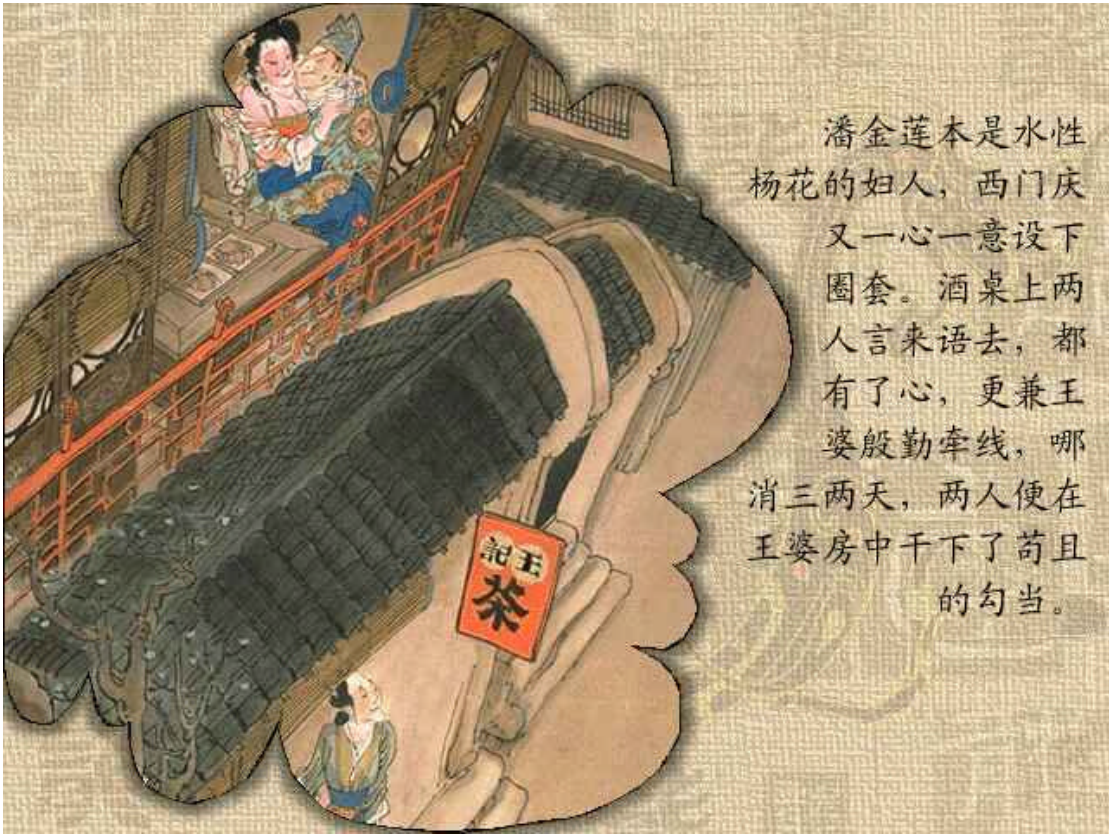 潘金莲本是水性
杨花的妇人，西门庆
又一心一意设下
圈套。酒桌上两
人言来语去，都
有了心，更兼王
婆殷勤牵线，哪
消三两天，两人便在
王婆房中干下了苟且
的勾当。
記王
茶